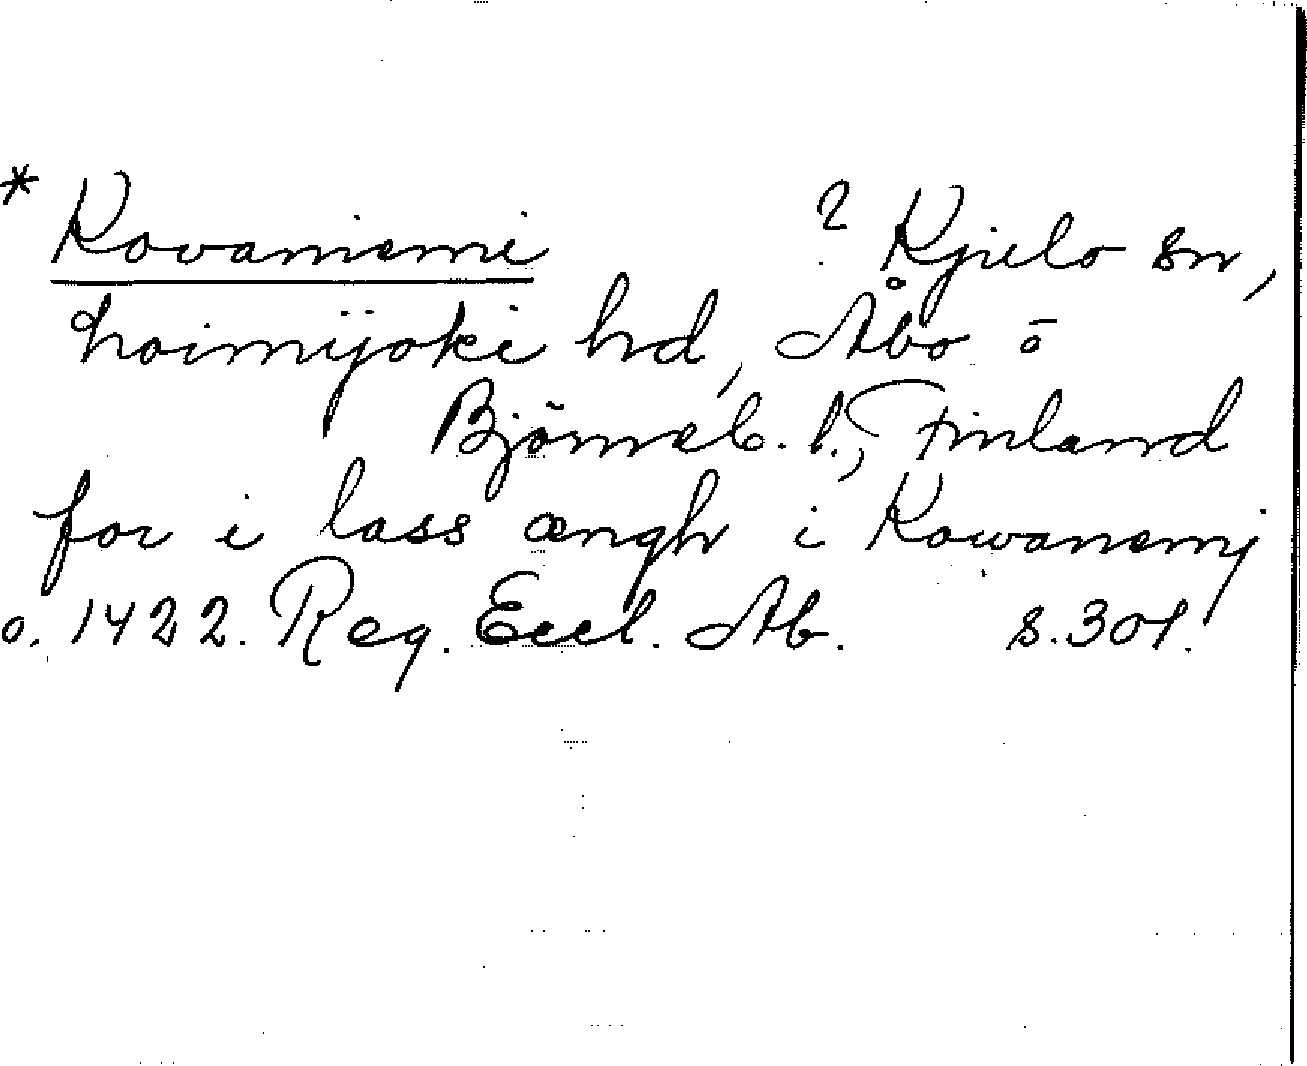 * Kovaniemi ? Kjulo sn,
Loimijoki hd, Åbo o
Björneb. l., Finland
for i lass ængh i Kowanemj
o. 1422. Reg. Eccl. Ab. s. 301.